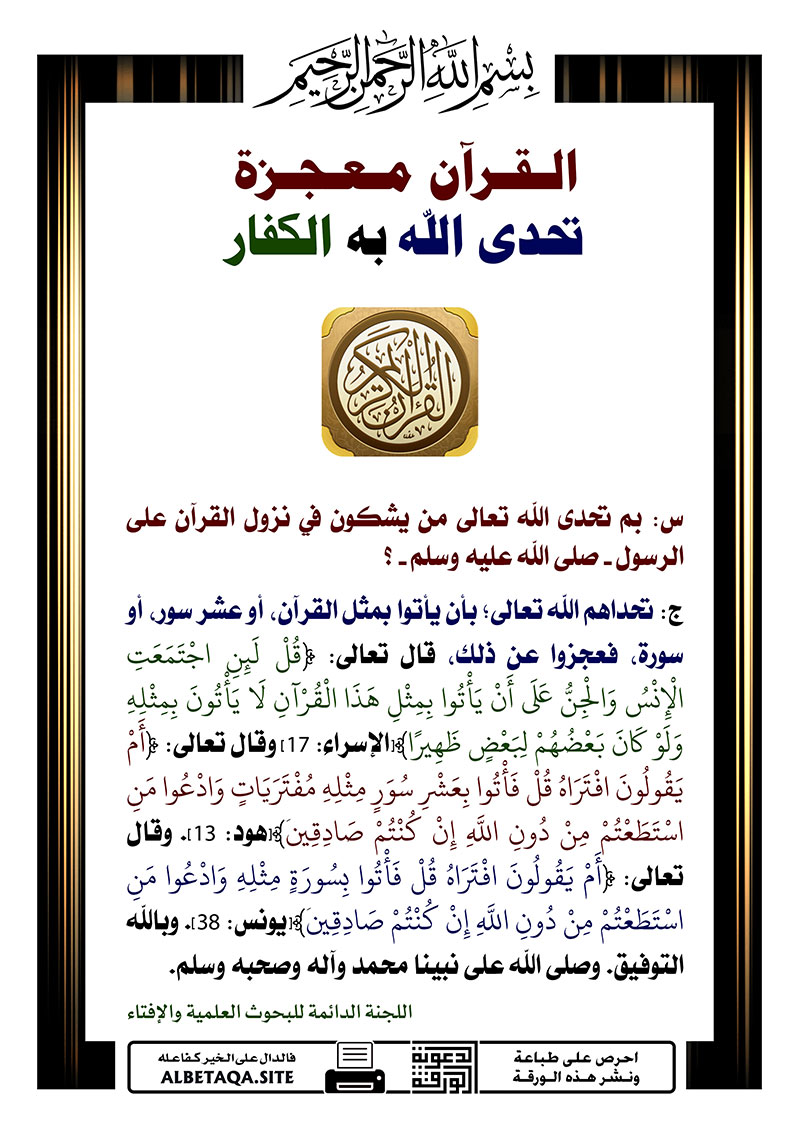 بِسْمِ اللَّهِ الرَّحْمَنِ الرَّحِيمِ
القرآن معجزة
تحدى الله به الكفار
القرآن الكريم
س: بم تحدى الله تعالى من يشكون في نزول القرآن على
الرسول ـ صلى الله عليه وسلم ـ ؟
ج: تحداهم الله تعالى؛ بأن يأتوا بمثل القرآن، أو عشر سور، أو
سورة، فعجزوا عن ذلك، قال تعالى: ﴿قُلْ لَئِنِ اجْتَمَعَتِ
الْإِنْسُ وَالْجِنُّ عَلَى أَنْ يَأْتُوا بِمِثْلِ هَذَا الْقُرْآنِ لَا يَأْتُونَ بِمِثْلِهِ
وَلَوْ كَانَ بَعْضُهُمْ لِبَعْضٍ ظَهِيرًا﴾[الإسراء: 17] وقال تعالى: ﴿أَمْ
يَقُولُونَ افْتَرَاهُ قُلْ فَأْتُوا بِعَشْرِ سُوَرٍ مِثْلِهِ مُفْتَرَيَاتٍ وَادْعُوا مَنِ
اسْتَطَعْتُمْ مِنْ دُونِ اللَّهِ إِنْ كُنْتُمْ صَادِقِينَ﴾[هود: 13]. وقال
تعالى: ﴿أَمْ يَقُولُونَ افْتَرَاهُ قُلْ فَأْتُوا بِسُورَةٍ مِثْلِهِ وَادْعُوا مَنِ
اسْتَطَعْتُمْ مِنْ دُونِ اللَّهِ إِنْ كُنْتُمْ صَادِقِينَ﴾[يونس: 38]. وبالله
التوفيق. وصلى الله على نبينا محمد وآله وصحبه وسلم.
اللجنة الدائمة للبحوث العلمية والإفتاء
احرص على طباعة
ونشر هذه الورقة
الورقة الدعوية
فالدال على الخير كفاعله
ALBETAQA.SITE